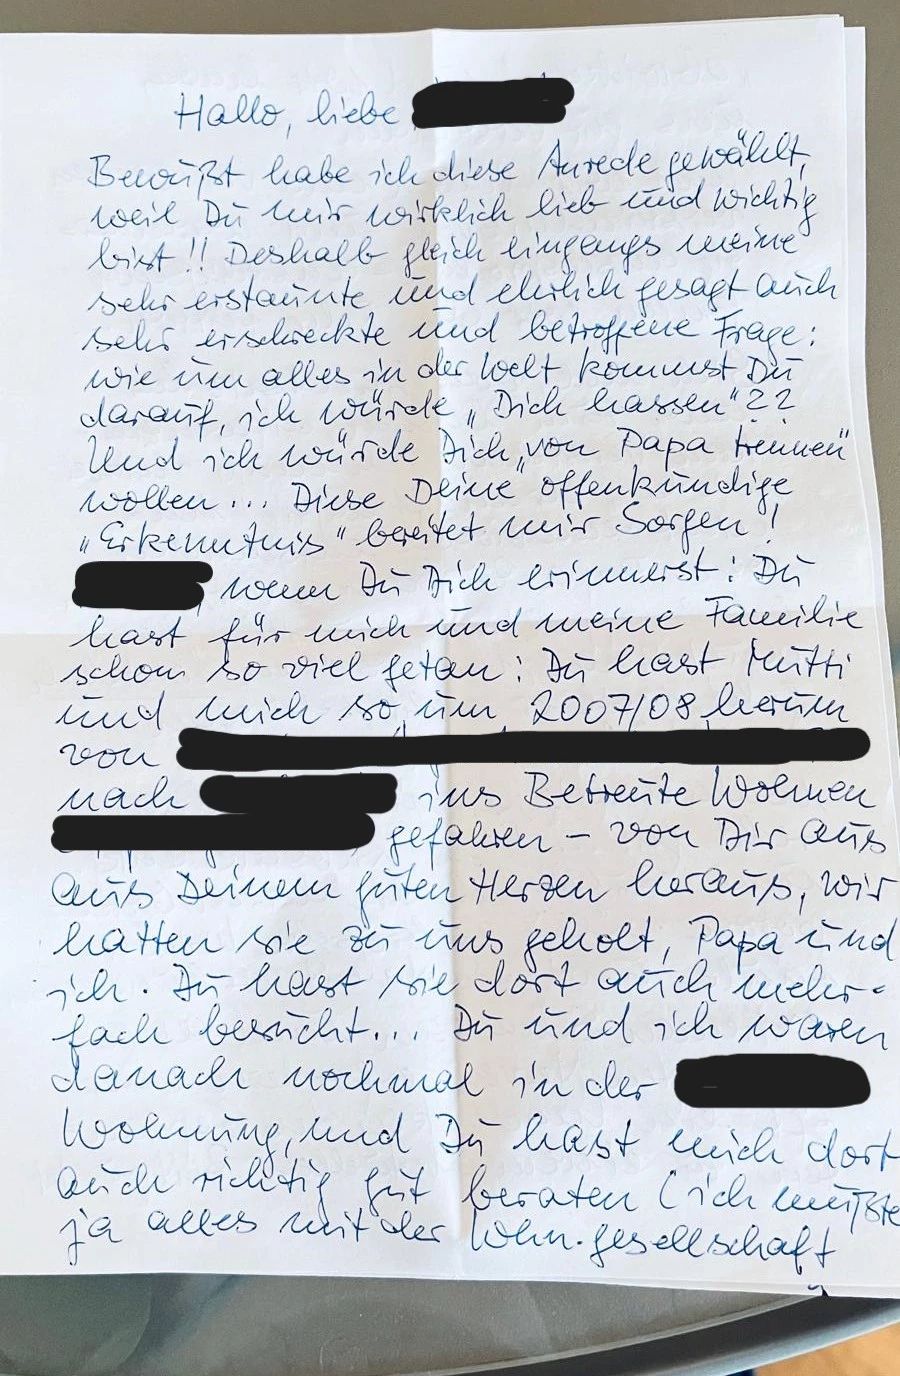 Hallo, liebe
Bewußt habe ich diese Anrede gewählt,
weil Du mir wirklich lieb und wichtig
bist!! Deshalb gleich eingangs meine
sehr erstaunte und ehrlich gesagt auch
sehr erschreckte und betroffene Frage:
wie um alles in der Welt kommst Du
darauf, ich würde „Dich hassen"??
Und ich würde Dich „von Papa trennen"
wollen... Diese Deine offenkundige
„Erkenntnis" bereitet mir Sorgen!
, wenn Du Dich erinnerst: Du
hast für mich und meine Familie
schon so viel getan: Du hast Mutti
und mich so um 2007/08 herum
von
nach ins Betreute Wohnen
gefahren – von Dir aus
aus Deinem guten Herzen heraus, wir
hatten sie zu uns geholt, Papa und
ich. Du hast sie dort auch mehr-
fach besucht... Du und ich waren
danach nochmal in der
Wohnung, und Du hast mich dort
auch richtig gut beraten (ich mußte
ja alles mit der Wohn.gesellschaft